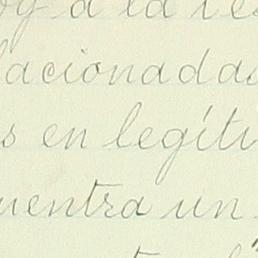 oy a la res
lacionadas
s en legíti
uentra un